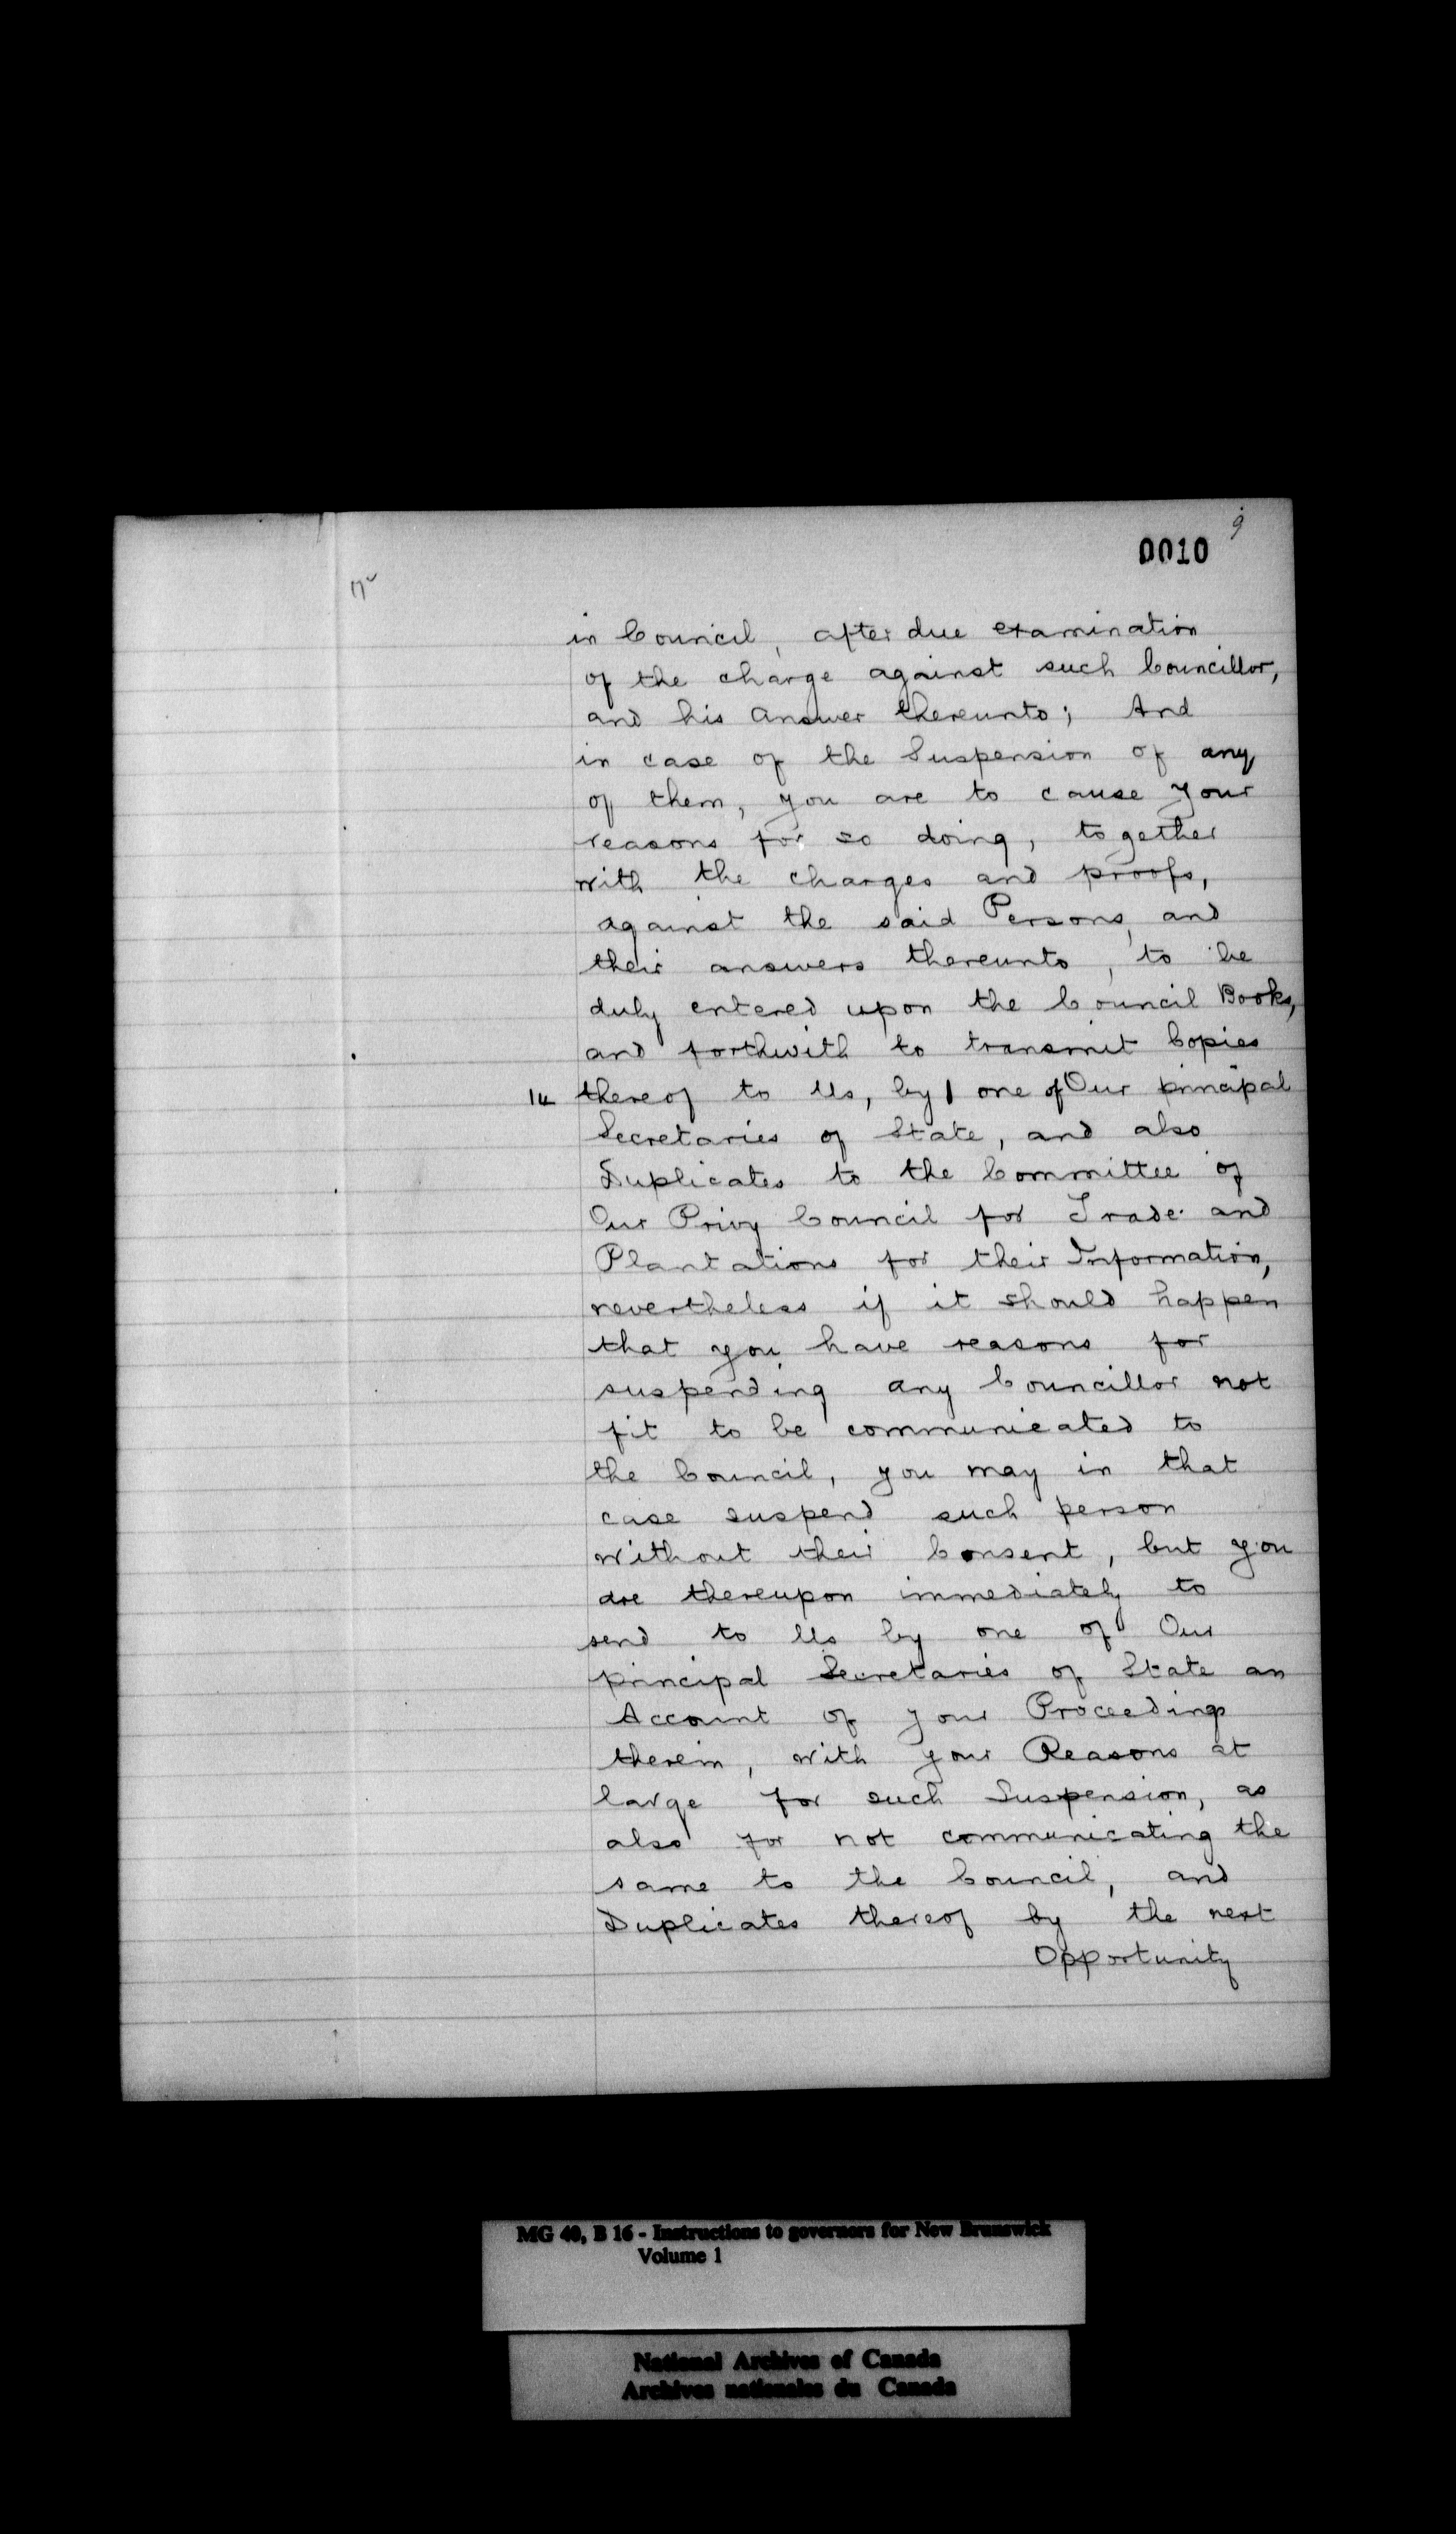 9
0010
in Council, after due examination
of the charge against such Councillor,
and his Answer thereunto; And
in case of the Suspension of any
of them, you are to cause your
reasons for so doing, together
with the charges and proofs,
against the said Persons, and
their answers thereunto, to be
duly entered upon the Council Books,
and forthwith to transmit Copies
14 thereof to Us, by | one of Our principal
Secretaries of State, and also
Duplicates to the Committee of
Our Privy Council for Trade and
Plantations for their Information,
nevertheless if it should happen
that you have reasons for
suspending any Councillor not
fit to be communicated to
the Council, you may in that
case suspend such person
without their Consent, but you
are thereupon immediately to
send to Us by one of Our
principal Secretaries of State an
Account of your Proceedings
therein, with your Reasons at
large for such Suspension, as
also for not communicating the
same to the Council, and
Duplicates thereof by the next
Opportunity
MG 40, B 16 - Instructions to governors for New Brunswick
Volume 1
National Archives of Canada
Archives nationales du Canada